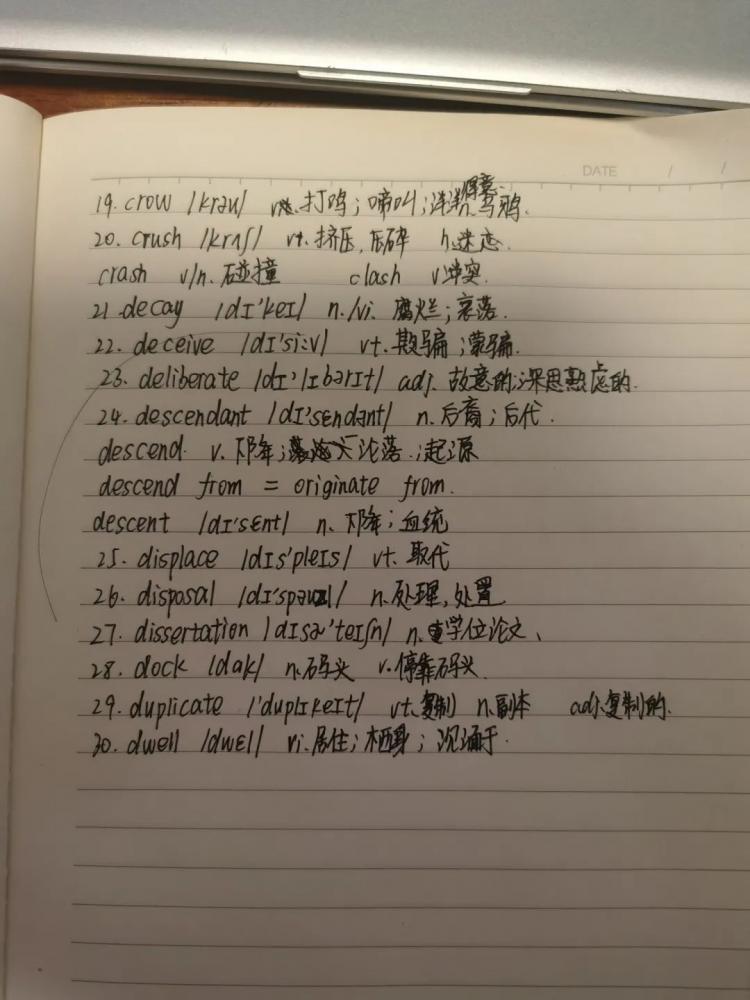 DATE / /
19. crow /krəu/ vi. 打鸣；啼叫；洋洋得意. 乌鸦.
20. crush /krʌʃ/ vt. 挤压, 压碎 n.迷恋.
crash v/n. 碰撞 clash v冲突.
21. decay /dɪ'keɪ/ n./vi. 腐烂；衰落.
22. deceive /dɪ'si:v/ vt. 欺骗；蒙骗.
23. deliberate /dɪ'lɪbərɪt/ adj. 故意的；深思熟虑的.
24. descendant /dɪ'sɛndənt/ n. 后裔；后代.
descend v. 下降；沦落；起源
descend from = originate from.
descent /dɪ'sɛnt/ n. 下降；血统
25. displace /dɪs'pleɪs/ vt. 取代
26. disposal /dɪ'spəuzl/ n.处理,处置
27. dissertation /dɪsə'teɪʃn/ n.学位论文、
28. dock /dak/ n.码头 v.停靠码头.
29. duplicate /'duplɪkeɪt/ vt.复制 n.副本 adj.复制的.
30. dwell /dwɛl/ vi.居住；栖身；沉湎于.